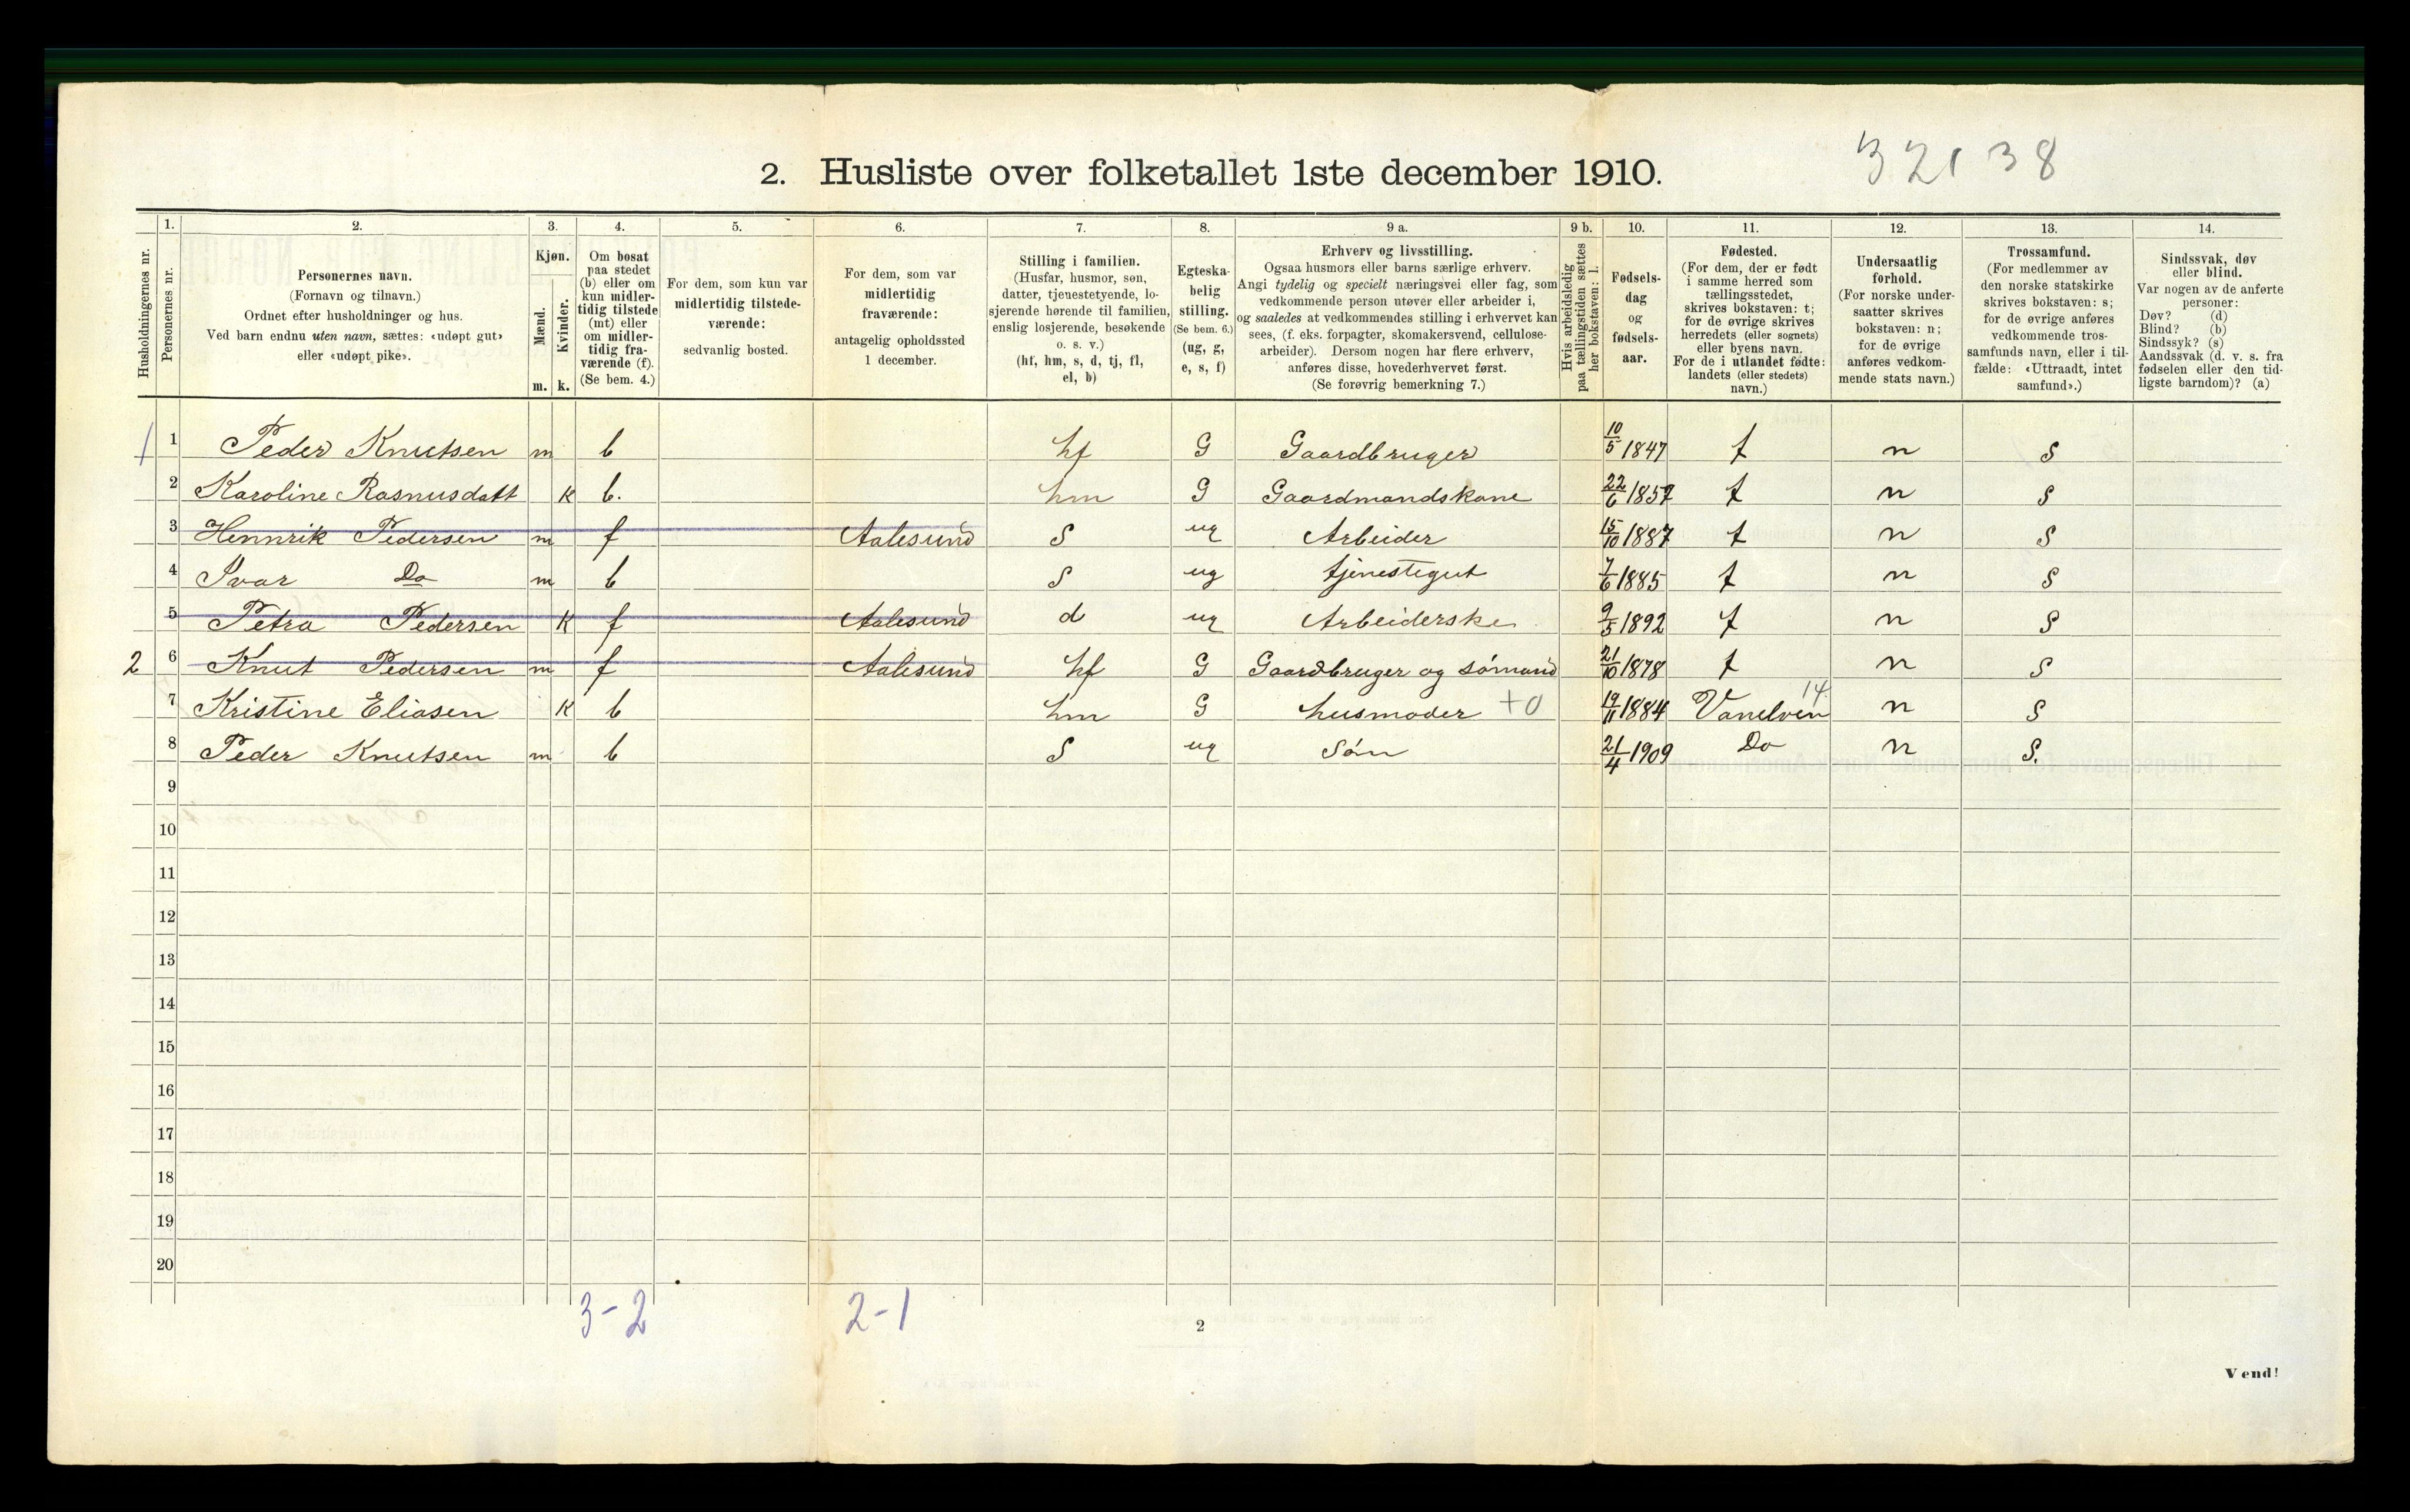 32138
2. Husliste over folketallet 1ste december 1910.
Husholdningernes nr.
1.
Personernes nr.
2.
Personernes navn.
(Fornavn og tilnavn.)
Ordnet efter husholdninger og hus.
Ved barn endnu uten navn, sættes: «udøpt gut»
eller «udøpt pike».
3.
Kjøn.
Mænd.
Kvinder.
m. k.
4.
Om bosat
paa stedet
(b) eller om
kun midler-
tidig tilstede
(mt) eller
om midler-
tidig fra-
værende (f).
(Se bem. 4.)
5.
For dem, som kun var
midlertidig tilstede-
værende:
sedvanlig bosted.
6.
For dem, som var
midlertidig
fraværende:
antagelig opholdssted
1 december.
7.
Stilling i familien.
(Husfar, husmor, søn,
datter, tjenestetyende, lo-
sjerende hørende til familien,
enslig losjerende, besøkende
o. s. v.)
(hf, hm, s, d, tj, fl,
el, b)
8.
Egteska-
belig
stilling.
(Se bem. 6.)
(ug, g,
e, s, f)
9 a.
Erhverv og livsstilling.
Ogsaa husmors eller barns særlige erhverv.
Angi tydelig og specielt næringsvei eller fag, som
vedkommende person utøver eller arbeider i,
og saaledes at vedkommendes stilling i erhvervet kan
sees, (f. eks. forpagter, skomakersvend, cellulose-
arbeider). Dersom nogen har flere erhverv,
anføres disse, hovederhvervet først.
(Se forøvrig bemerkning 7.)
9 b.
Hvis arbeidsledig
paa tællingstiden sættes
her bokstaven: l.
10.
Fødsels-
dag
og
fødsels-
aar.
11.
Fødested.
(For dem, der er født
i samme herred som
tællingsstedet,
skrives bokstaven: t;
for de øvrige skrives
herredets (eller sognets)
eller byens navn.
For de i utlandet fødte:
landets (eller stedets)
navn.)
12.
Undersaatlig
forhold.
(For norske under-
saatter skrives
bokstaven: n;
for de øvrige
anføres vedkom-
mende stats navn.)
13.
Trossamfund.
(For medlemmer av
den norske statskirke
skrives bokstaven: s;
for de øvrige anføres
vedkommende tros-
samfunds navn, eller i til-
fælde: «Uttraadt, intet
samfund».)
14.
Sindssvak, døv
eller blind.
Var nogen av de anførte
personer:
Døv? (d)
Blind? (b)
Sindssyk? (s)
Aandssvak (d. v. s. fra
fødselen eller den tid-
ligste barndom)? (a)
1 1 Peder Knutsen m b hf G Gaardbruger 10/5 1847 t n S
2 Karoline Rasmusdatt K b. hm G Gaardmandskone 22/6 1857 t n S
3 Hennrik Pedersen m f Aalesund S ug Arbeider 15/10 1887 t n S
4 Ivar Do m b S ug tjenestegut 7/6 1885 t n S
5 Petra Pedersen K f Aalesund d ug Arbeiderske 9/5 1892 t n S
2 6 Knut Pedersen m f Aalesund hf G Gaardbruger og sømand 21/10 1878 t n S
7 Kristine Eliasen K b hm G husmoder +0 19/11 1884 Vanelven 14 n S
8 Peder Knutsen m b S ug Søn 21/4 1909 Do n S.
9
10
11
12
13
14
15
16
17
18
19
20
3-2 2-1
2
Vend!